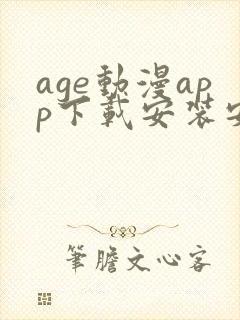 age動漫ap
p下載安裝安
筆膽文心客